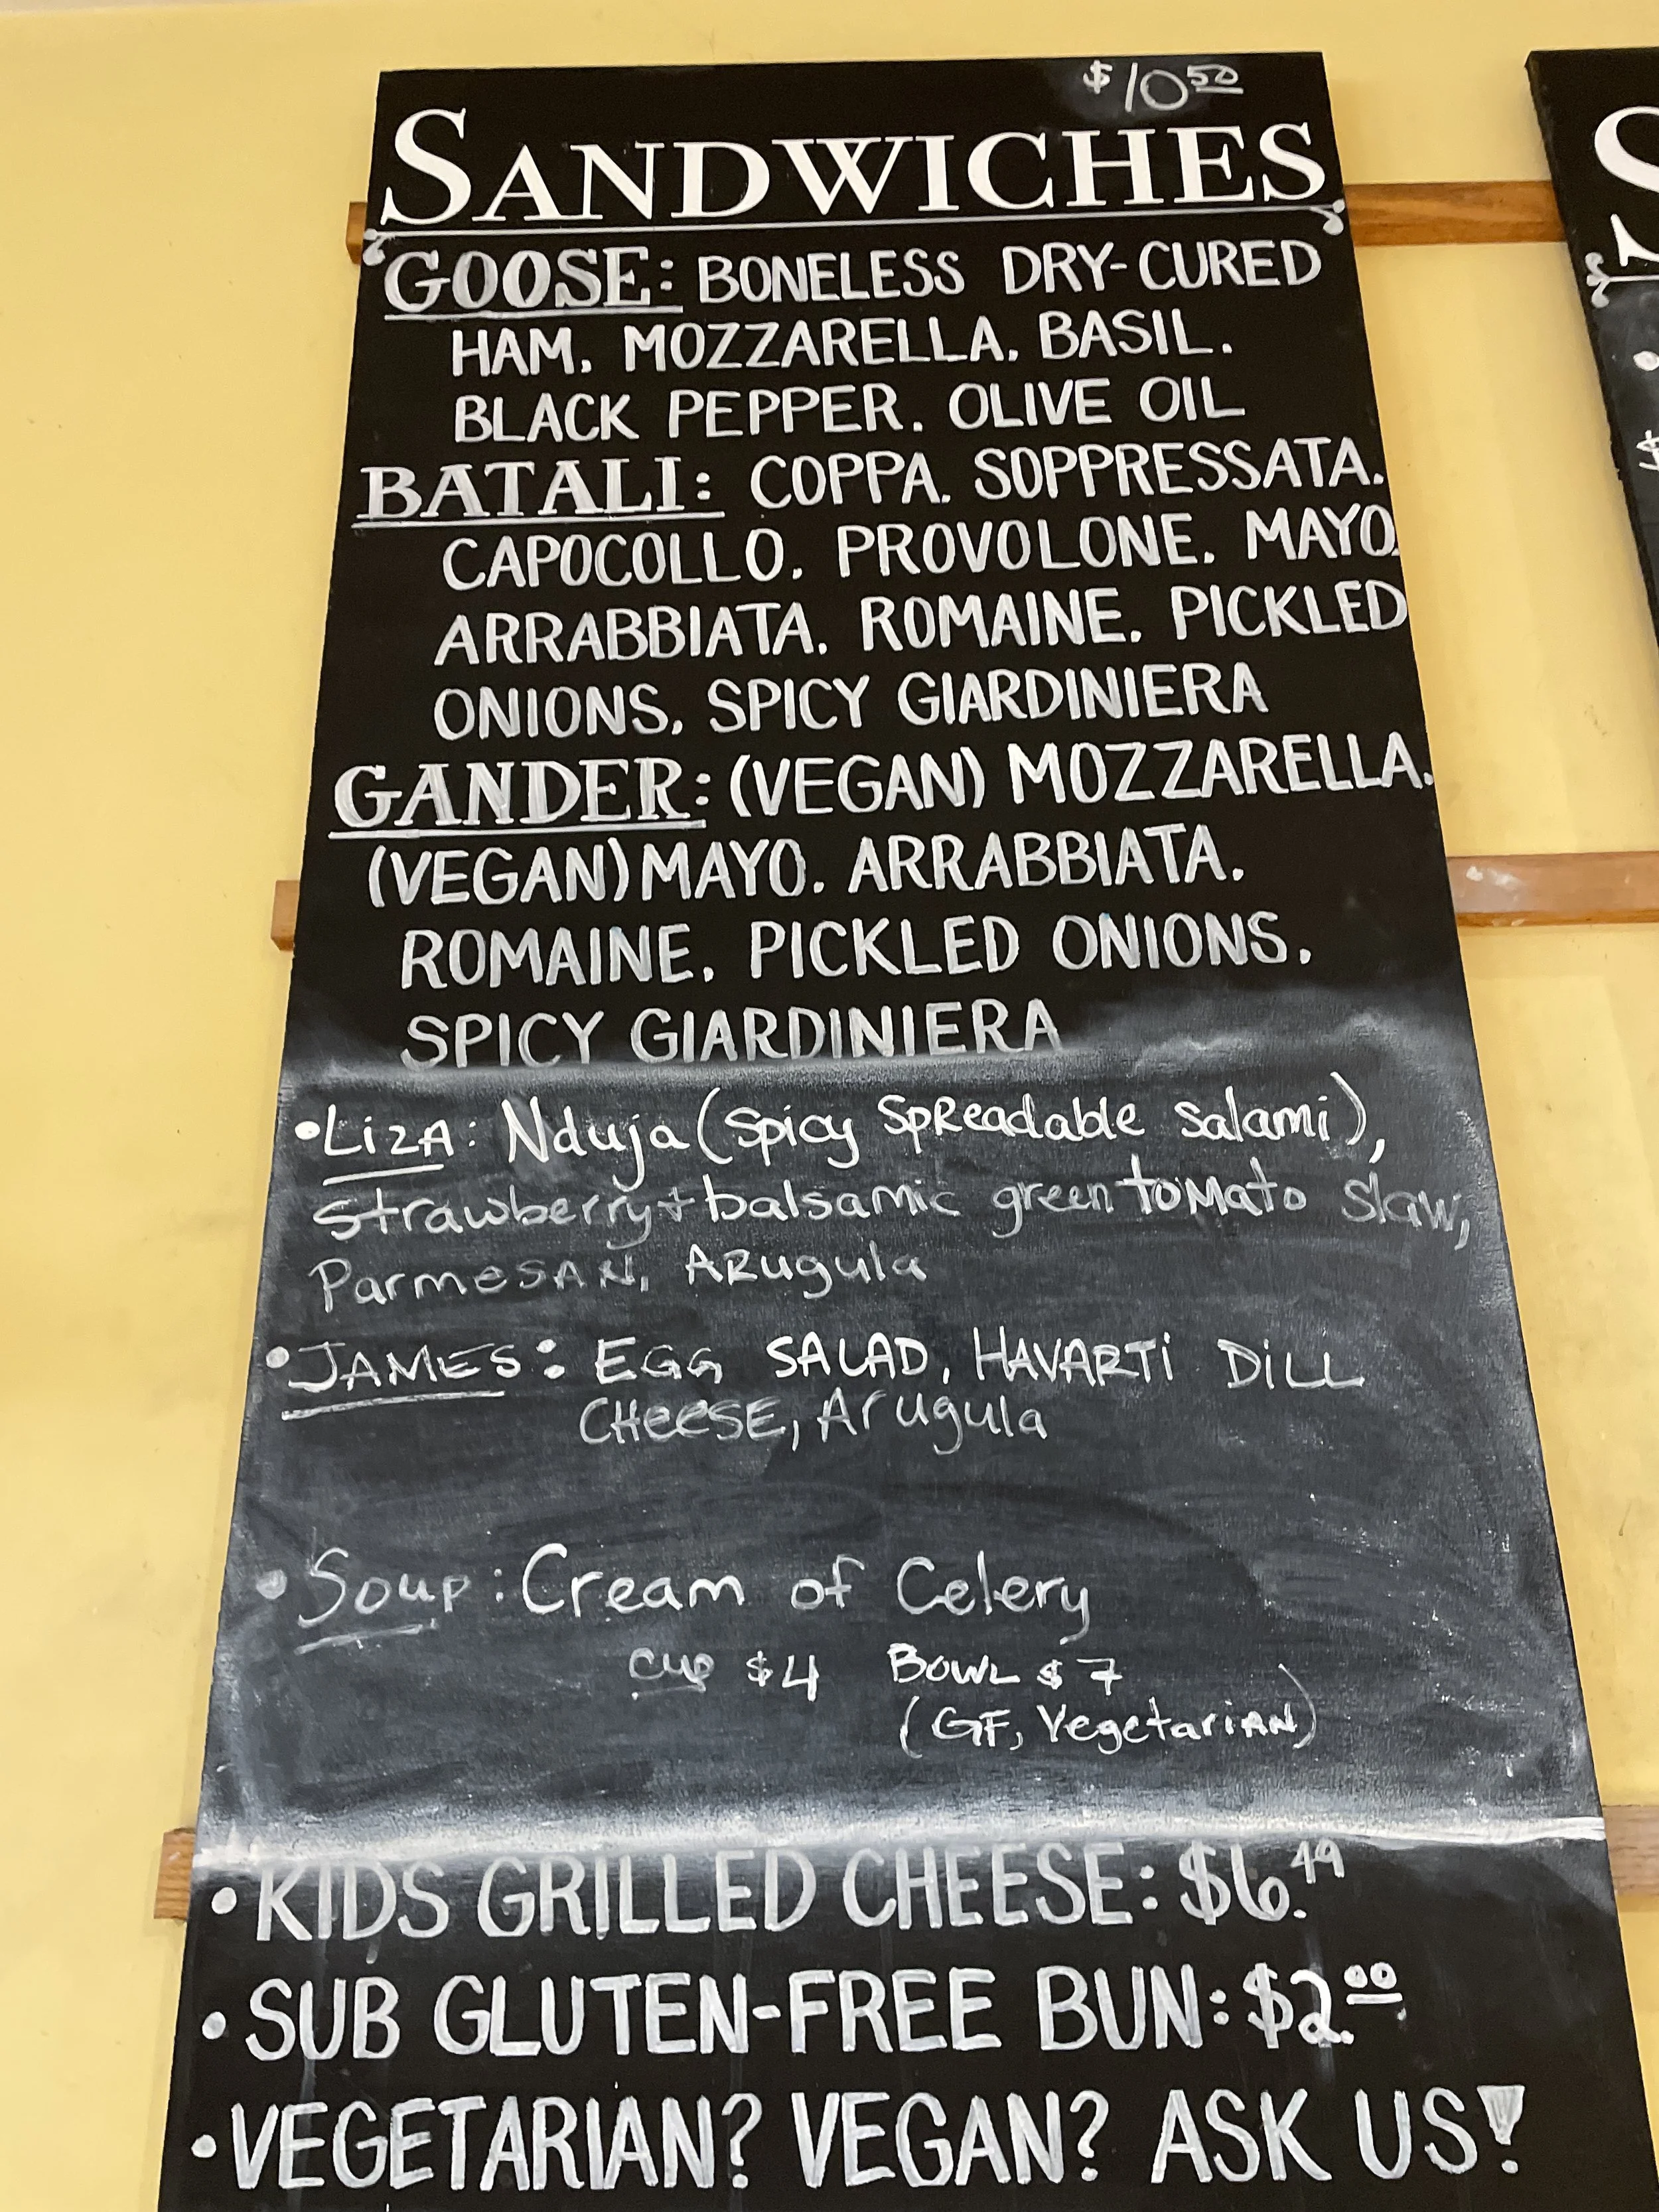 $10.50
SANDWICHES
GOOSE: BONELESS DRY-CURED
HAM. MOZZARELLA. BASIL.
BLACK PEPPER. OLIVE OIL
BATALI: COPPA. SOPPRESSATA.
CAPOCOLLO. PROVOLONE. MAYO.
ARRABBIATA. ROMAINE. PICKLED
ONIONS. SPICY GIARDINIERA
GANDER: (VEGAN) MOZZARELLA.
(VEGAN) MAYO. ARRABBIATA.
ROMAINE. PICKLED ONIONS.
SPICY GIARDINIERA
•LizA: Nduja (Spicy SpReadable salami),
strawberry + balsamic green toMato slaw,
ParmeSAN, ARugula
•JAMES: EGG SALAD, HAVARTi DiLL
CHeeSE, Arugula
•Soup: Cream of Celery
cup $4 BOWL $7
(GF, VegetariAN)
•KIDS GRILLED CHEESE: $6.49
•SUB GLUTEN-FREE BUN: $2.00
•VEGETARIAN? VEGAN? ASK US!
S
$